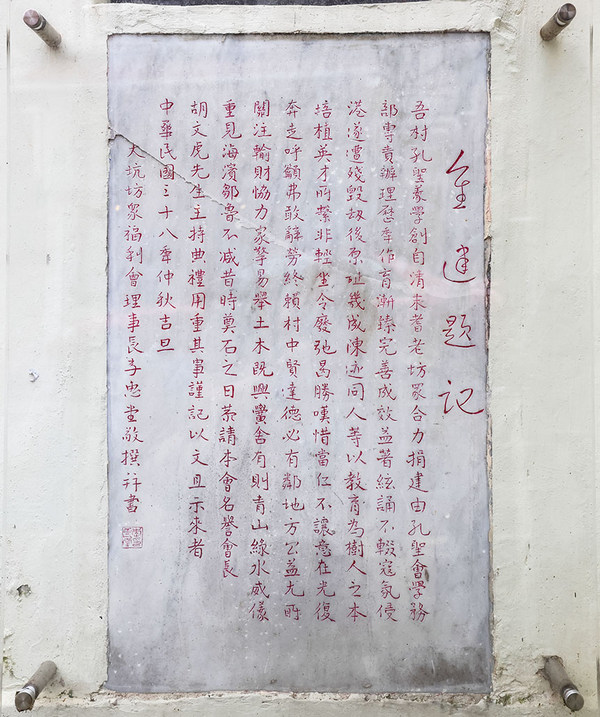 重建題記
吾村孔聖義學創自清末耆老坊眾合力捐建由孔聖會學務
部專責辦理歷年作育漸臻完善成效益著絃誦不輟寇氛侵
港遂遭殘毀劫後原址幾成陳迹同人等以教育為樹人之本
培植英才所繫非輕坐令廢弛曷勝嘆惜當仁不讓意在光復
奔走呼籲弗敢辭勞終賴村中賢達德必有鄰地方公益尤所
關注輸財協力眾擎易舉土木既興黌舍有則青山綠水威儀
重見海濱鄒魯不減昔時奠石之日恭請本會名譽會長
胡文虎先生主持典禮用重其事謹記以文且示來者
中華民國三十八年仲秋吉旦
大坑坊眾福利會理事長李忠堂敬撰並書